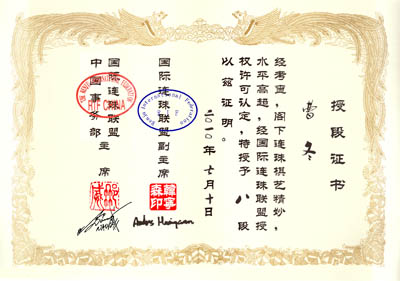 授段证书
曹冬
经考查，阁下连珠棋艺精妙，
水平高超，经国际连珠联盟授
权许可认定，特授予 八 段
以兹证明。
二〇一〇年七月十日
国际连珠联盟副主席
Renju International Federation
国际连珠联盟
中国事务部 主席
RIF CHINA